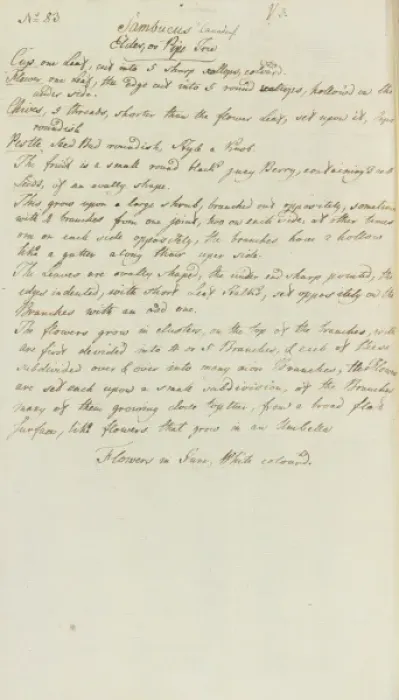 No 83 V 3.
Sambucus
Elder, or Pipe Tree
Cup, one Leaf, cut into 5 sharp scallops, colourd.
Flower one leaf, the edge cut into 5 round scallops, hollowed on the
under side.
Chives, 5 threads, shorter than the flower leaf, set upon it, tips
roundish
Pestle, Seed Bud roundish, Style a knob.
The fruit is a small round black juicy Berry, containing
Seeds, of an ovally shape.
This grows upon a large shrub, branched out oppositely, sometimes
with 4 branches from one point, two on each side, at other times
one on each side oppositely, the branches have a hollow
like a gutter along their uper side.
The Leaves are ovally shaped, the under end sharp pointed, the
edges indented, with short Leaf Stalks, set oppositely on the
Branches with an odd one.
The flowers grow in clusters, on the top of the branches, which
are first divided into 4 or 5 Branches, & each of these
subdivided over & over into many more Branches, the flowers
are set each upon a small subdivision, of the Branches
many of them growing close together, form a broad flat
surface, like flowers that grow in an Umbella
Flowers in June, White colourd.